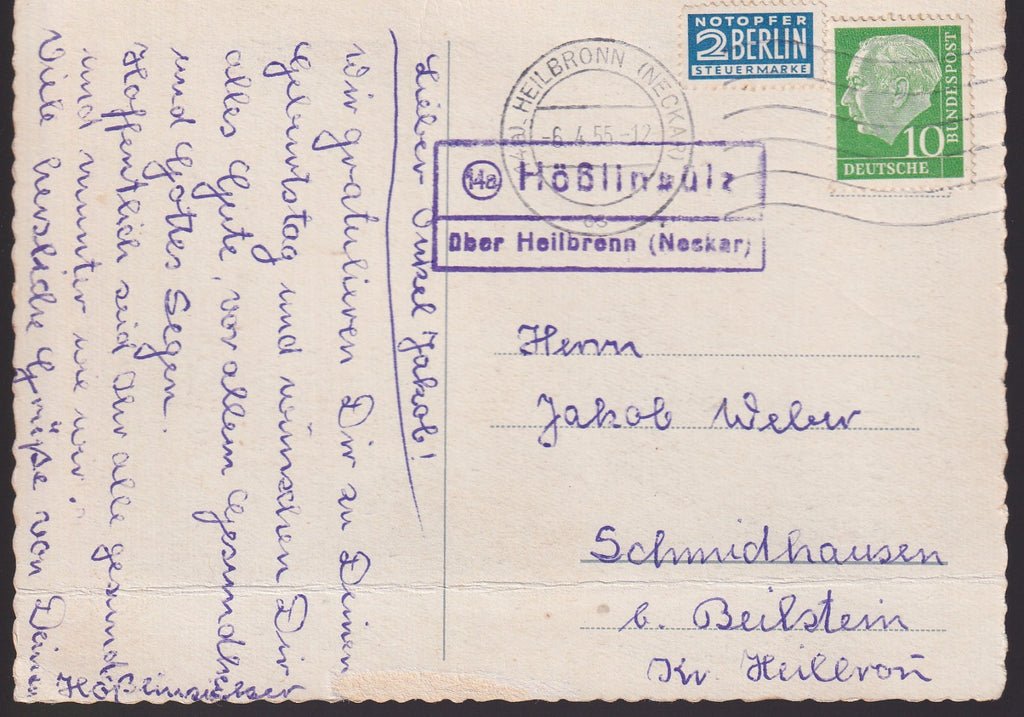 Lieber Onkel Jakob!
Wir gratulieren Dir zu Deinem
Geburtstag und wünschen Dir
alles Gute, vor allem Gesundheit
und Gottes Segen.
Hoffentlich seid Ihr alle gesund
und munter wie wir.
Viele herzliche Grüße von Deinen
Hößlinsülzer
NOTOPFER
2 BERLIN
STEUERMARKE
10
DEUTSCHE
BUNDESPOST
HEILBRONN (NECKAR)
-6.4.55-12
14a Hößlinsülz
über Heilbronn (Neckar)
Herrn
Jakob Weber
Schmidhausen
b. Beilstein
Kr. Heilbron̄